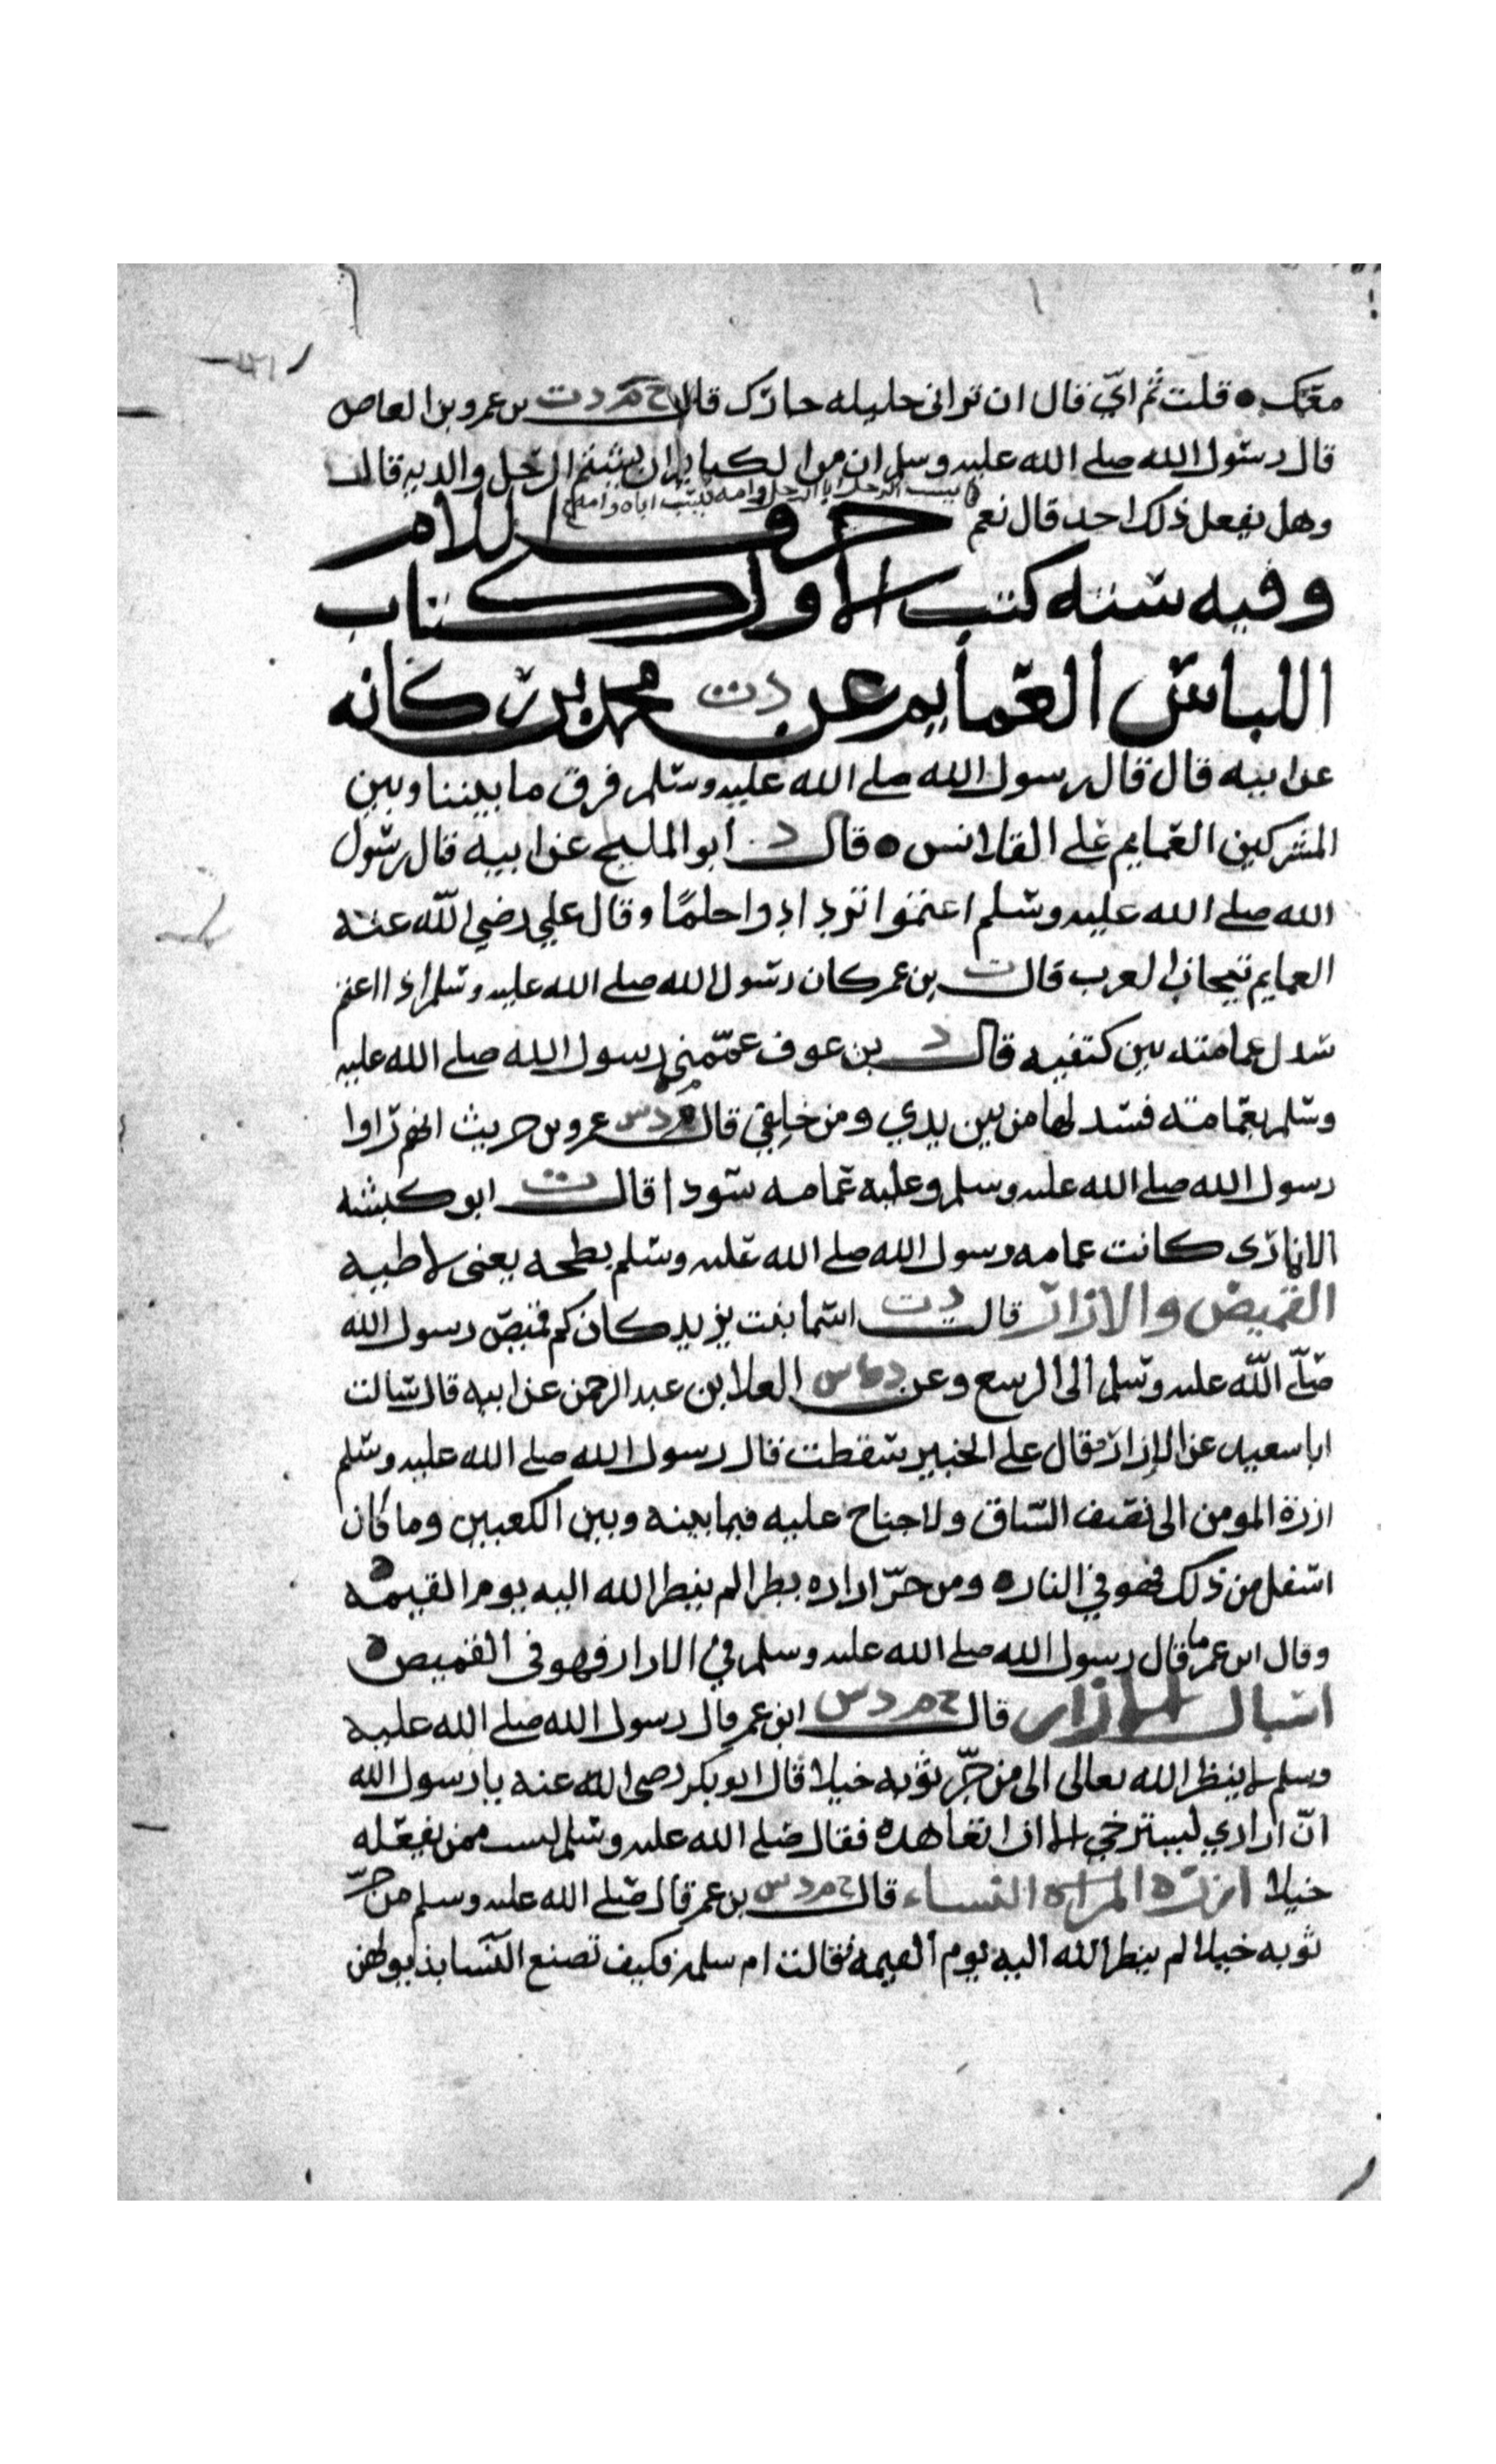 معك ه قلت ثم اي قال ان تزانى حليله جارك قال خ م د ت بن عمرو بن العاص
قال رسول الله صلى الله عليه وسلم ان من الكباير ان يشتم الرجل والديه قالت
يسب الرجل ابا الرجل وامه فيسب اباه وامه
وهل يفعل ذلك احد قال نعم حرف اللام
وفيه سته كتب الاول كتاب
اللباس العمايم عن د ت محمد بن ركانه
عن ابيه قال قال رسول الله صلى الله عليه وسلم فرق ما بيننا وبين
المشركين العمايم على القلانس ه قال د ابو المليح عن ابيه قال رسول
الله صلى الله عليه وسلم اعتموا تزدادوا حلمًا وقال علي رضي الله عنه
العمايم تيجان العرب قال ت بن عمر كان رسول الله صلى الله عليه وسلم اذا اعتم
سدل عمامته بين كتفيه قال د بن عوف عمّمني رسول الله صلى الله عليه
وسلم بعمامته فسدلها من بين يدي ومن خلفي قال م د س عمرو بن حريث انهم راوا
رسول الله صلى الله عليه وسلم وعليه عمامه سودا قال ت ابو كبشه
الانماري كانت عمامه رسول الله صلى الله عليه وسلم بطحه يعنى لاطيه
القميص والازار قال د ت اسما بنت يزيد كان كم قميص رسول الله
صلّى الله عليه وسلم الى الرسغ وعن د العلا بن عبد الرحمن عن ابيه قال سالت
ابا سعيد عن الازار فقال على الخبير سقطت قال رسول الله صلى الله عليه وسلم
ازرة المومن الى نصف الساق ولا جناح عليه فيما بينه وبين الكعبين وما كان
اسفل من ذلك فهو في النار ه ومن جرّ ازاره بطرا لم ينظر الله اليه يوم القيمه ه
وقال ابن عمر ما قال رسول الله صلى الله عليه وسلم في الازار فهو في القميص ه
اسبال الازار قال خ م د س ابن عمر قال رسول الله صلى الله عليه
وسلم لا ينظر الله تعالى الى من جرّ ثوبه خيلا قال ابو بكر رضى الله عنه يا رسول الله
انّ ازاري ليسترخي الا ان اتعاهده فقال صلى الله عليه وسلم لست ممن يفعله
خيلا ازرة المراه النساء قال خ م د س بن عمر قال صلى الله عليه وسلم من جرّ
ثوبه خيلا لم ينظر الله اليه يوم القيمه فقالت ام سلمه فكيف تصنع النسا بذيولهن